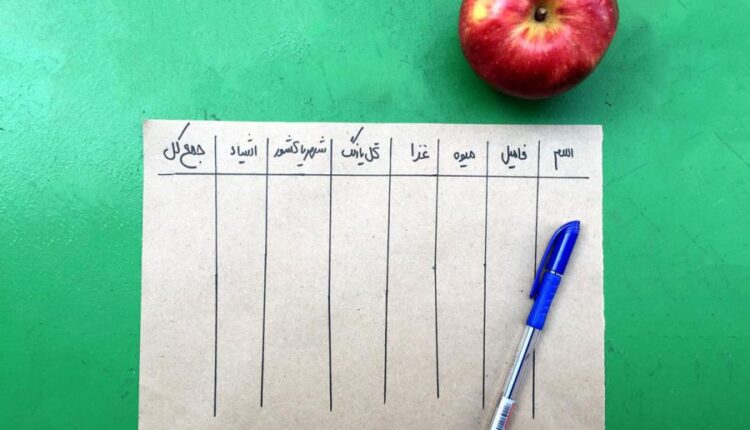 اسم فامیل میوه غذا گل یا رنگ شهر یا کشور اشیاء جمع کل